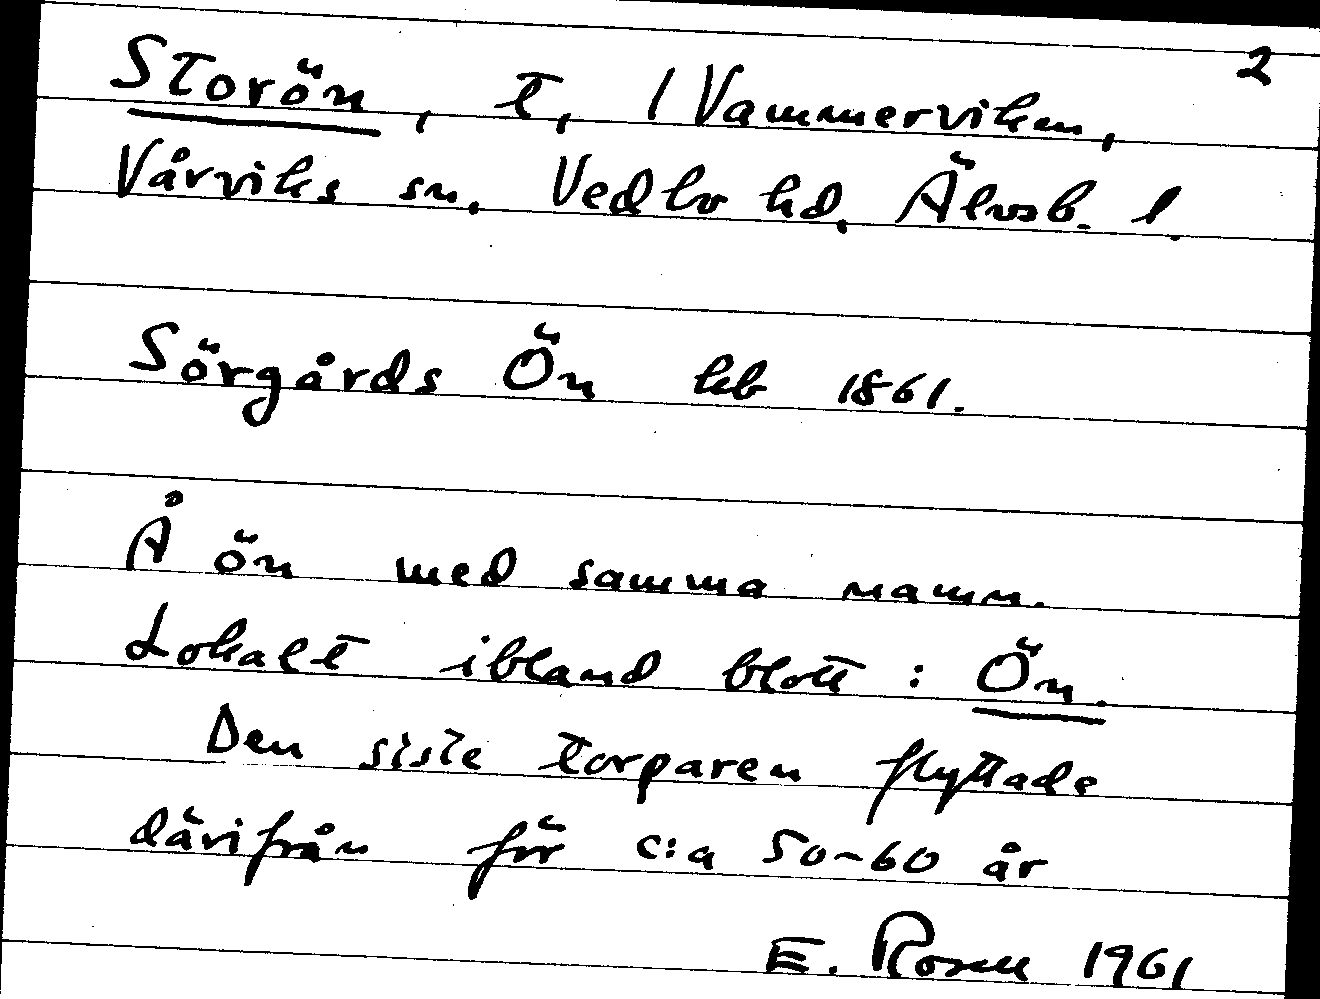 2
Storön, t, i Vammerviken,
Vårviks sn. Vedbo hd, Älvsb. l.
Sörgårds Ön hb 1861.
Å ön med samma namn.
Lokalt ibland blott: Ön.
Den siste torparen flyttade
därifrån för c:a 50-60 år
E. Rosell 1961